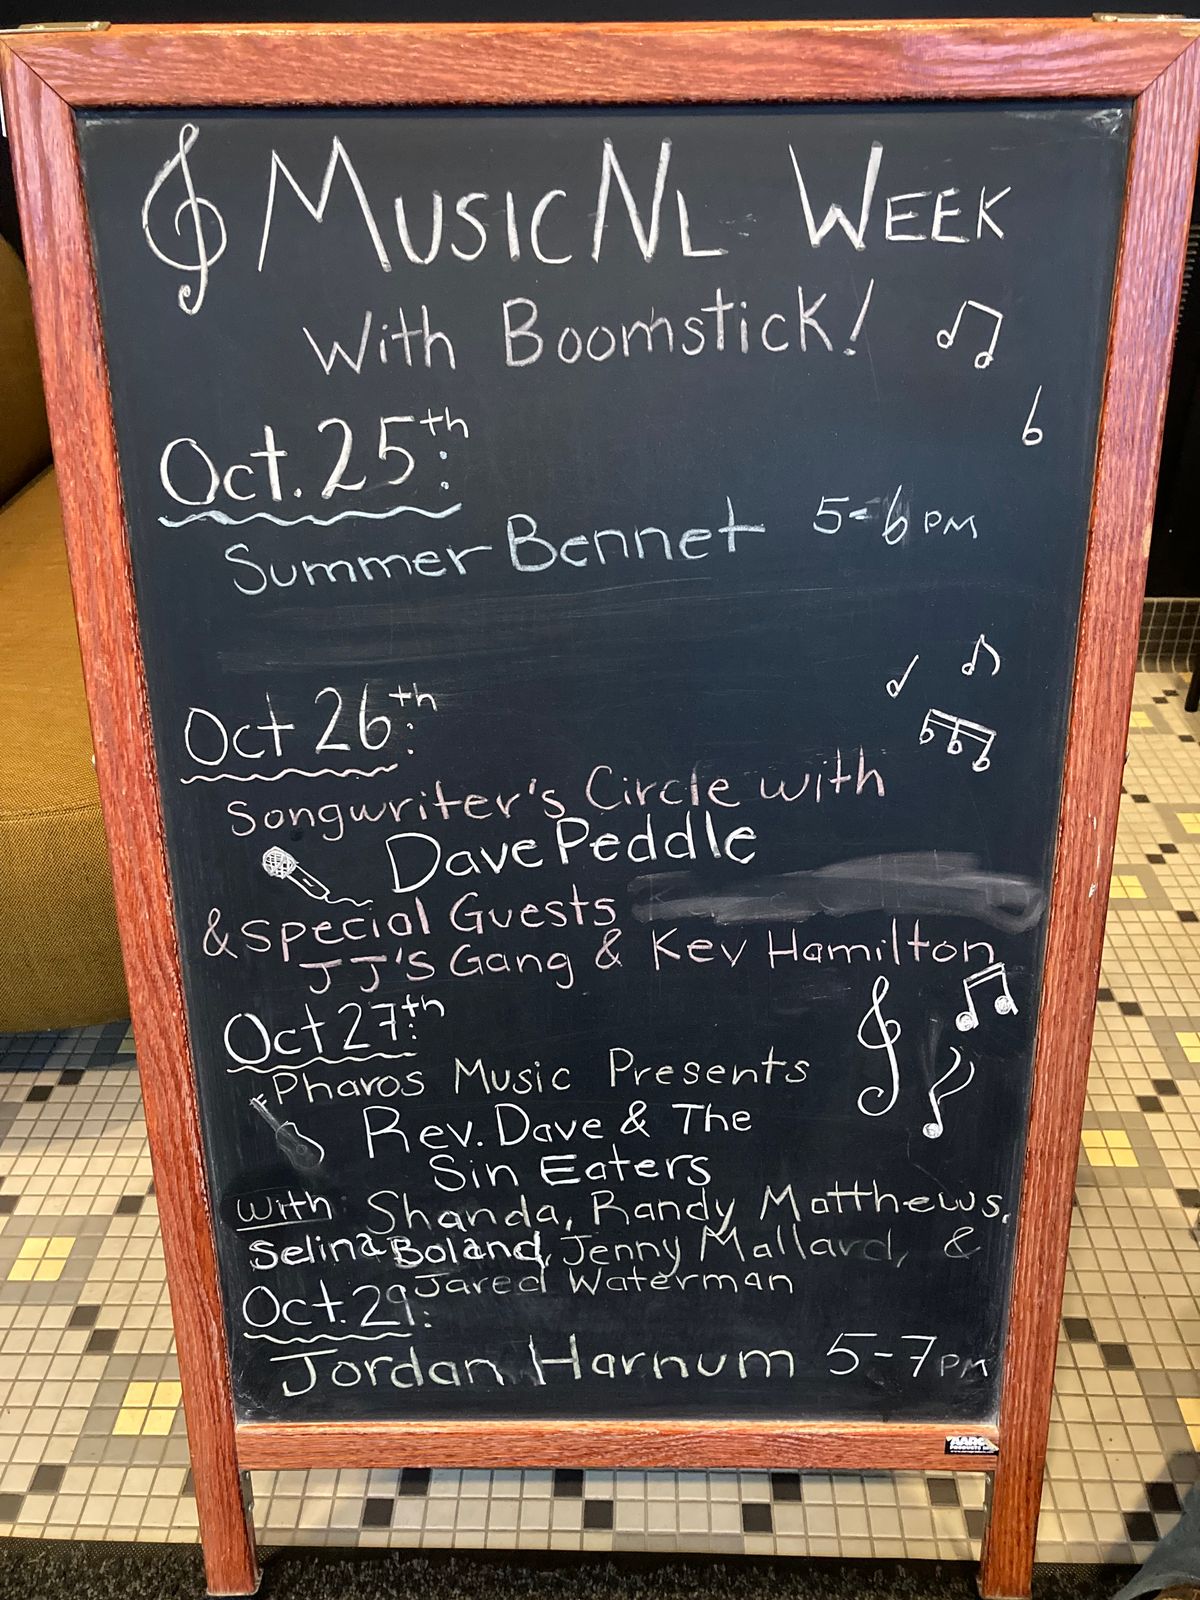 MUSICNL WEEK
With Boomstick!
Oct. 25th:
Summer Bennet 5-6 PM
Oct 26th:
Songwriter's Circle with
Dave Peddle
& Special Guests
JJ's Gang & Kev Hamilton
Oct 27th:
Pharos Music Presents
Rev. Dave & The
Sin Eaters
with: Shanda, Randy Matthews,
Selina Boland, Jenny Mallard, &
Jared Waterman
Oct. 29:
Jordan Harnum 5-7 PM
AARCO